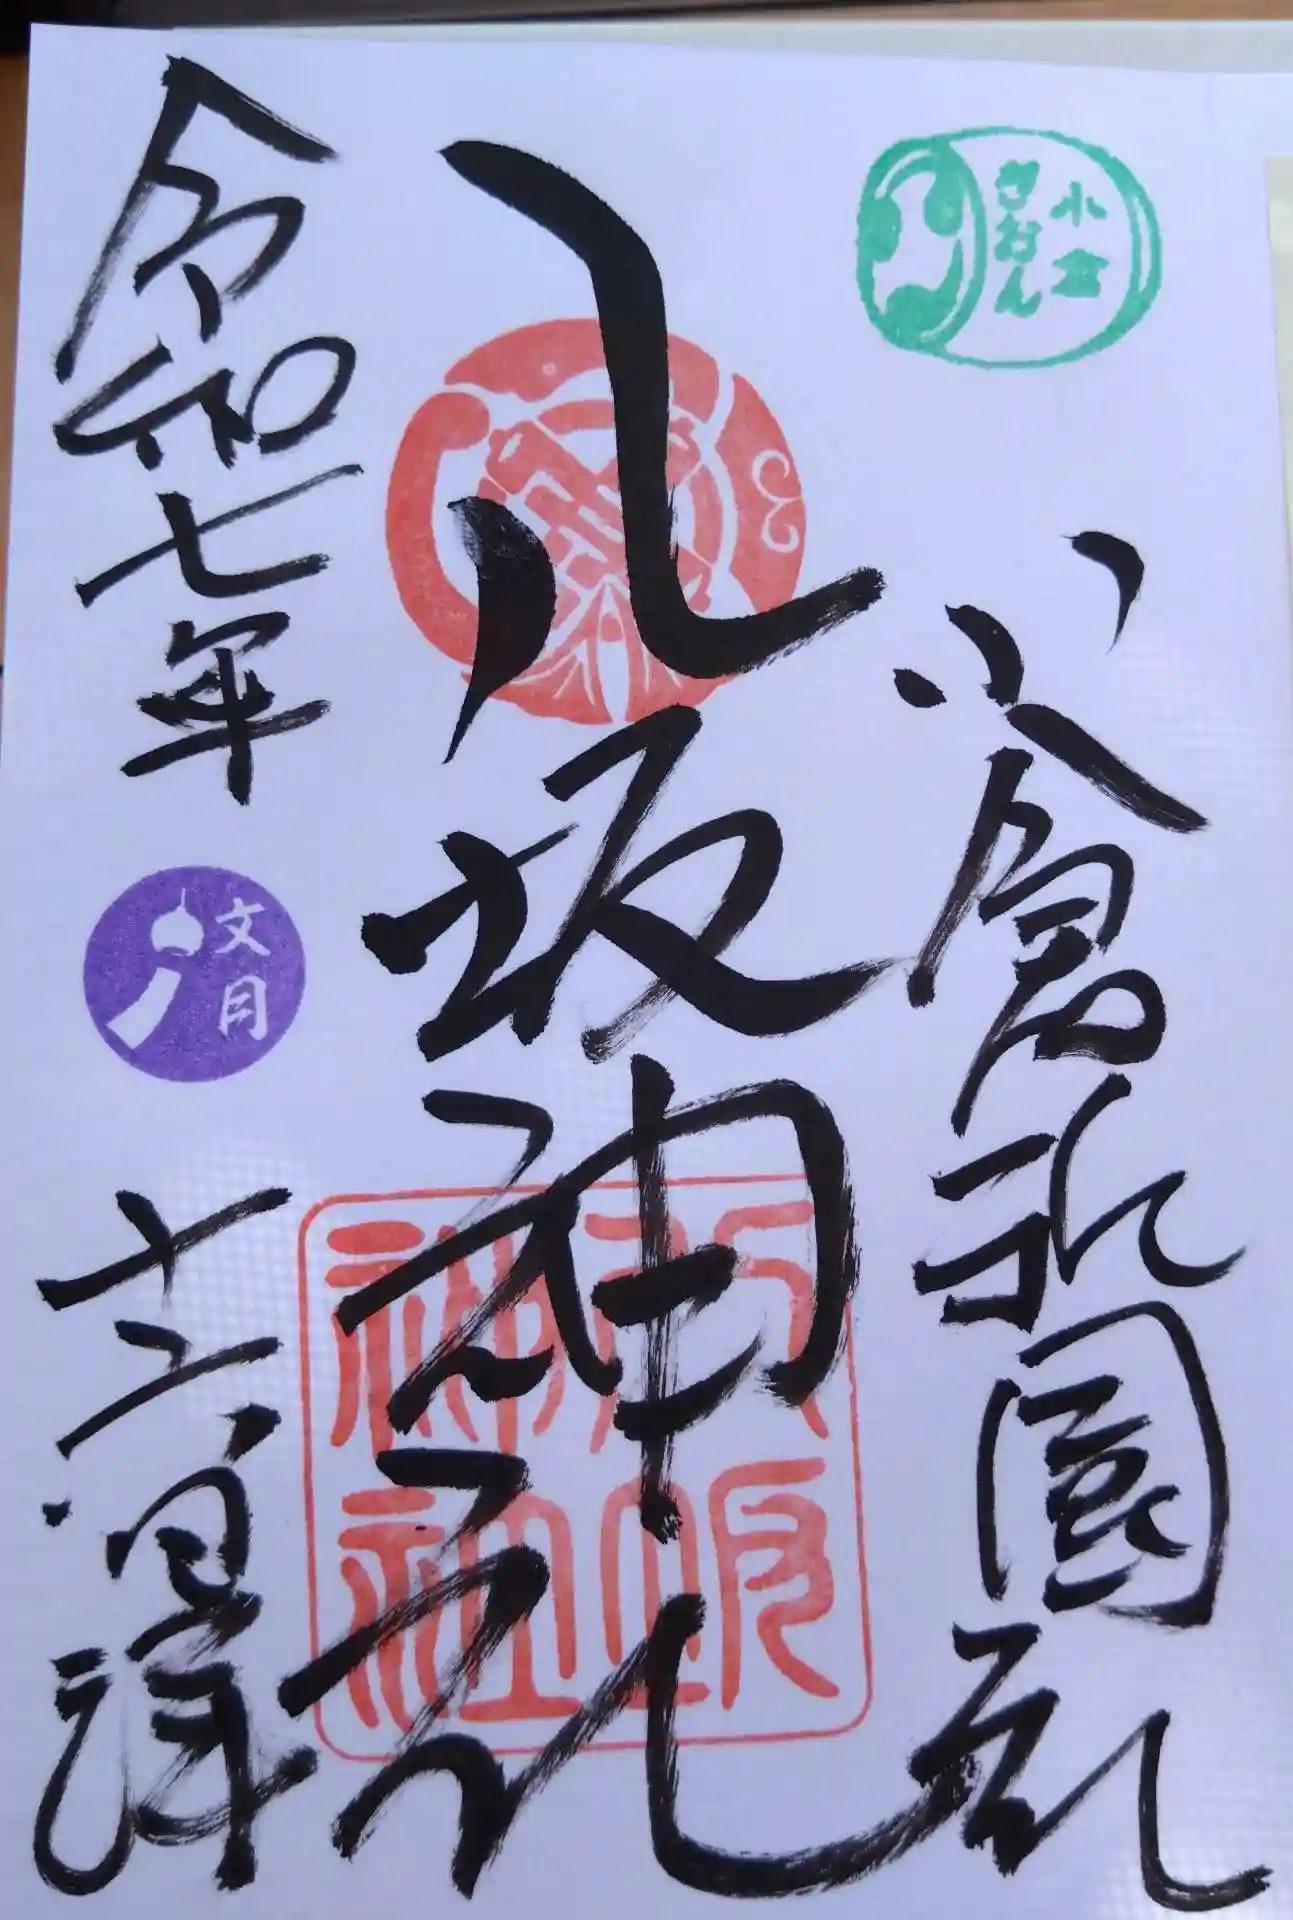 小倉
ぎおん
小倉祇園社
八坂神社
八坂
神社
令和七年
文月
十六日